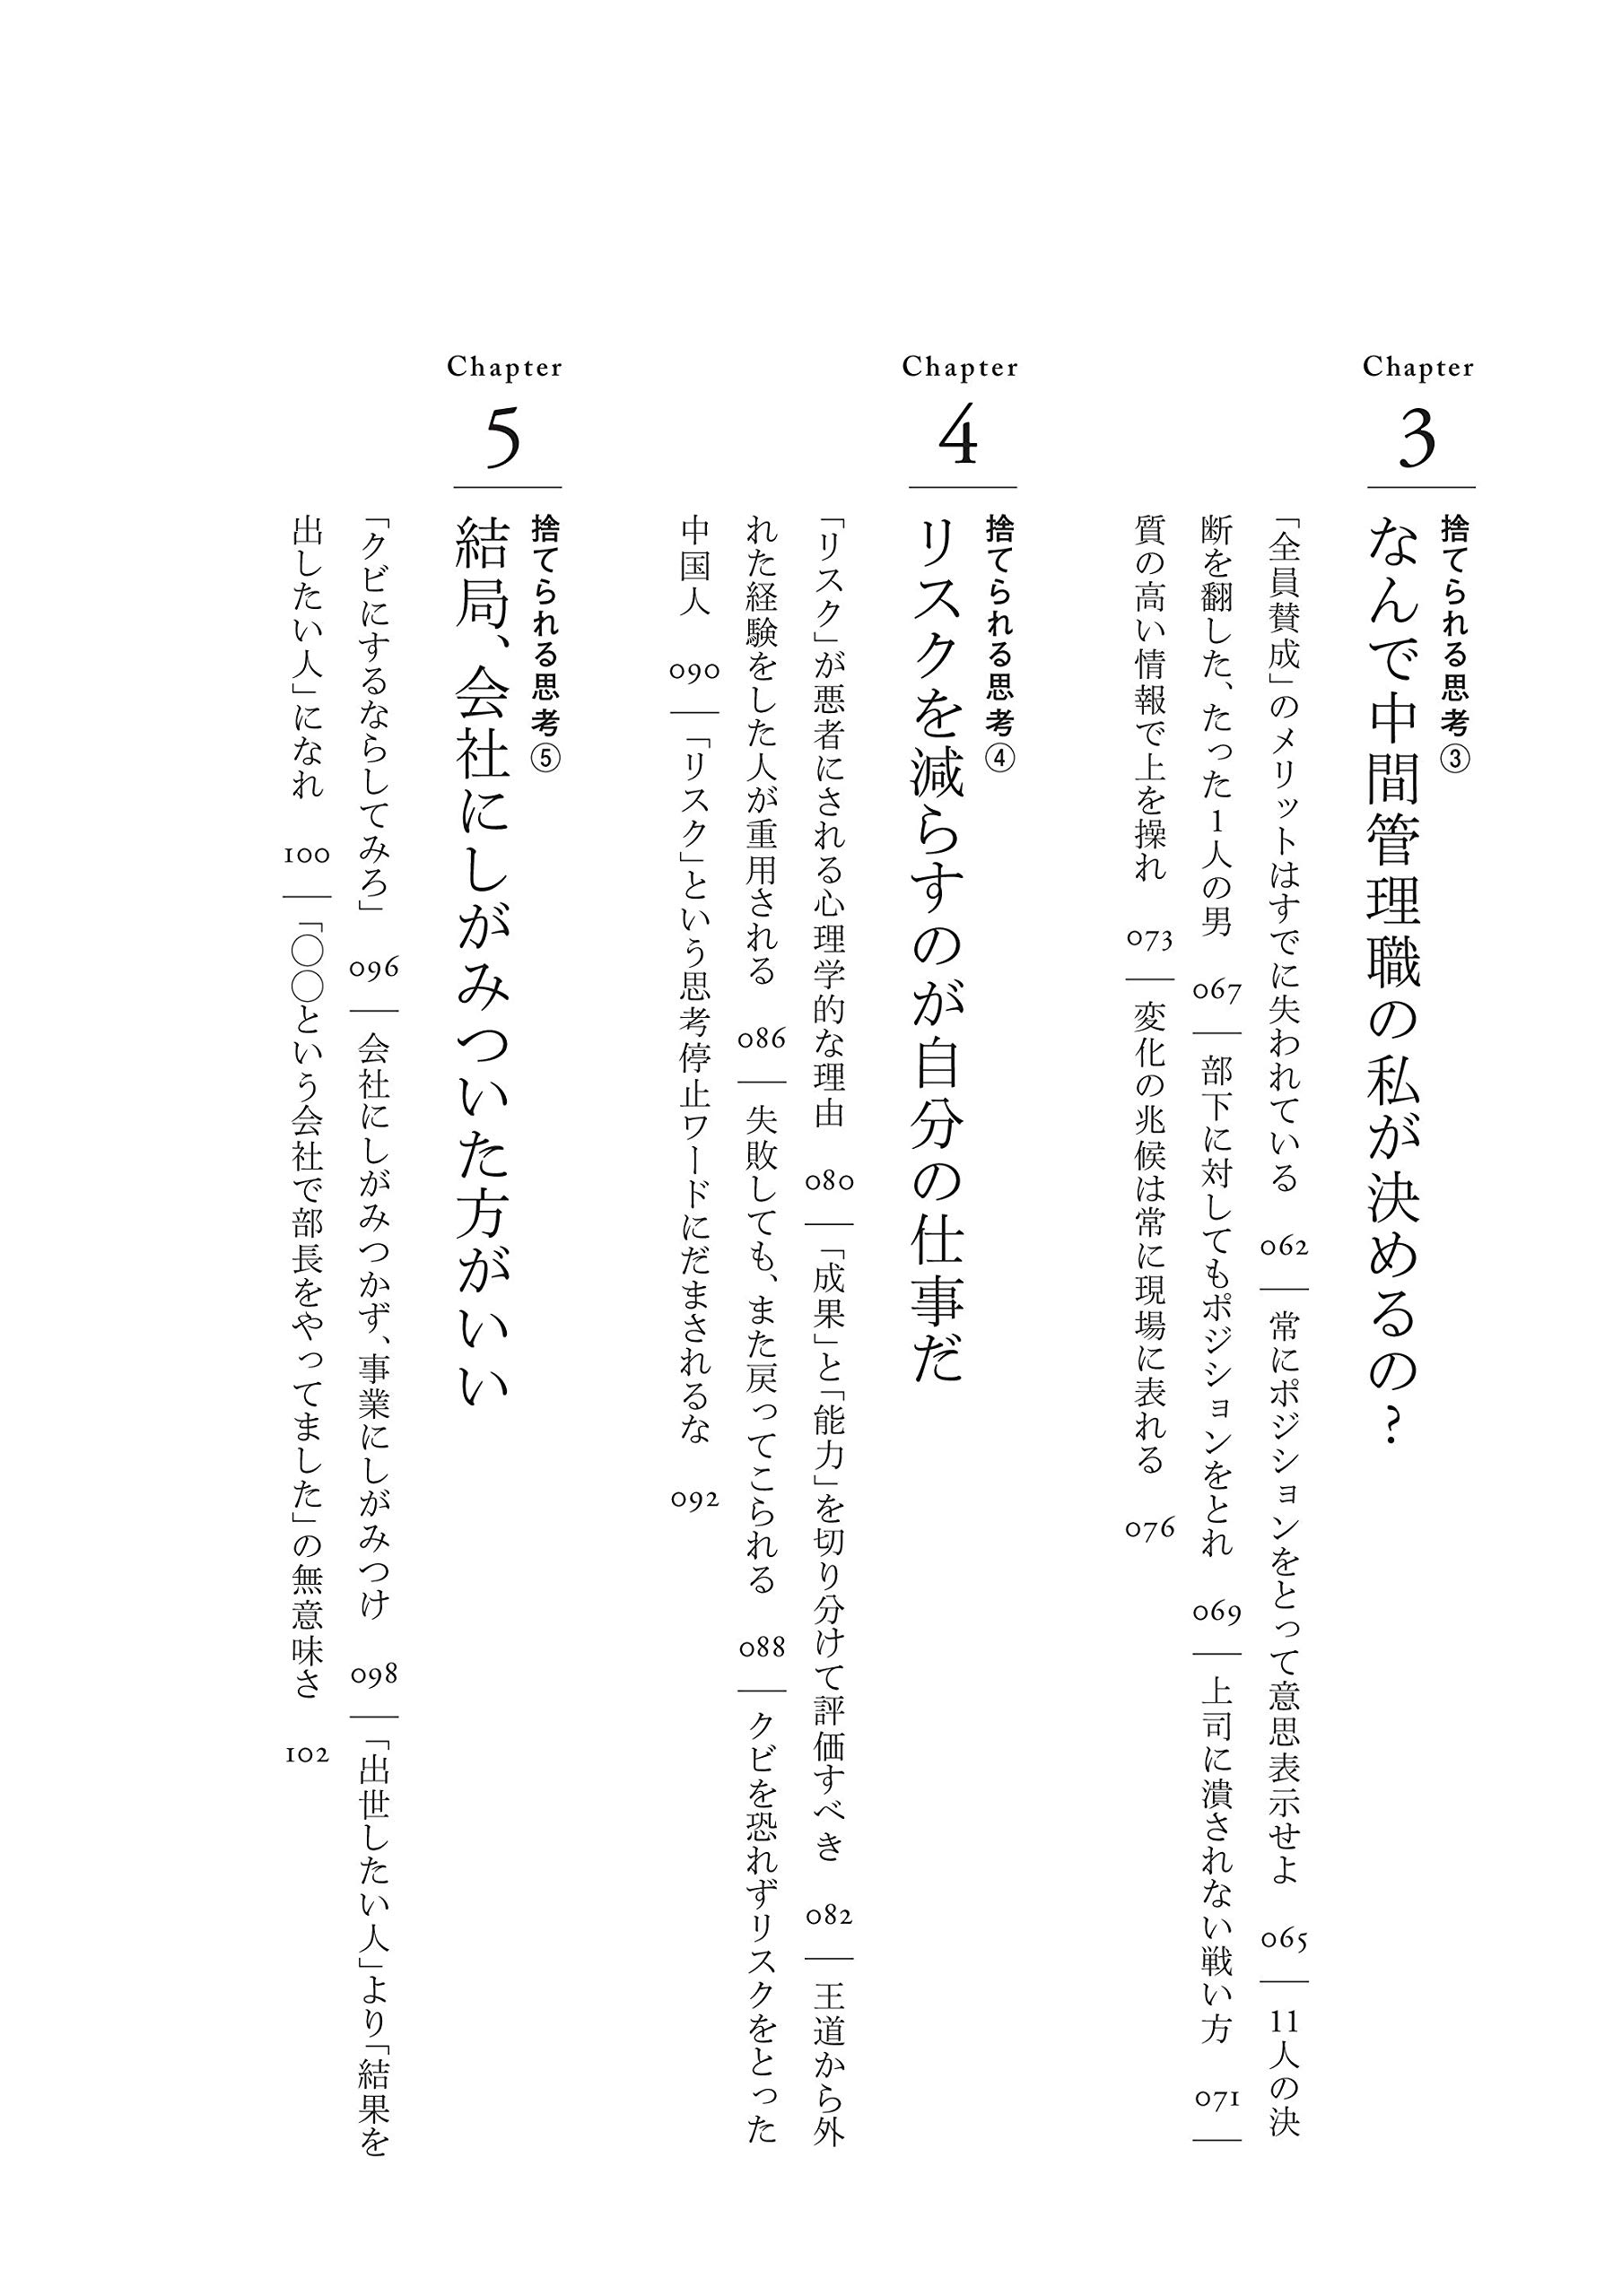 Chapter
3
捨てられる思考③
なんで中間管理職の私が決めるの?
「全員賛成」のメリットはすでに失われている 062 ― 常にポジションをとって意思表示せよ 065 ― 11人の決
断を翻した、たった1人の男 067 ― 部下に対してもポジションをとれ 069 ― 上司に潰されない戦い方 071 ―
質の高い情報で上を操れ 073 ― 変化の兆候は常に現場に表れる 076
Chapter
4
捨てられる思考④
リスクを減らすのが自分の仕事だ
「リスク」が悪者にされる心理学的な理由 080 ― 「成果」と「能力」を切り分けて評価すべき 082 ― 王道から外
れた経験をした人が重用される 086 ― 失敗しても、また戻ってこられる 088 ― クビを恐れずリスクをとった
中国人 090 ― 「リスク」という思考停止ワードにだまされるな 092
Chapter
5
捨てられる思考⑤
結局、会社にしがみついた方がいい
「クビにするならしてみろ」 096 ― 会社にしがみつかず、事業にしがみつけ 098 ― 「出世したい人」より「結果を
出したい人」になれ 100 ― 「〇〇という会社で部長をやってました」の無意味さ 102